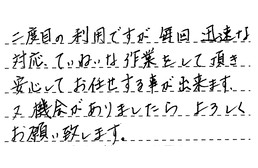 二度目の利用ですが毎回 迅速な
対応、ていねいな作業をして頂き
安心してお任せする事が出来ます。
又機会がありましたら よろしく
お願い致します。